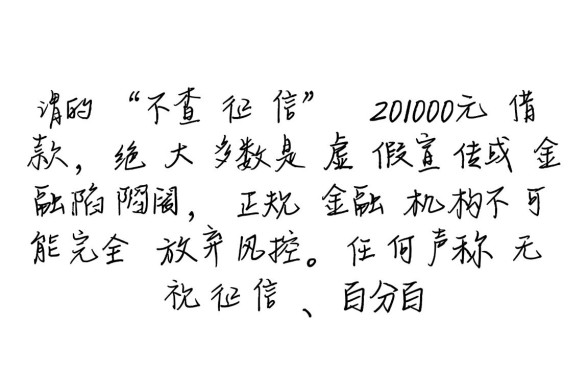 谓的“不查征信” 201000元 借
款，绝大多数是虚假宣传或金
融陷阱阁，正规金融机构不可
能完全放弃风控。任何声称无
视征信、百分百